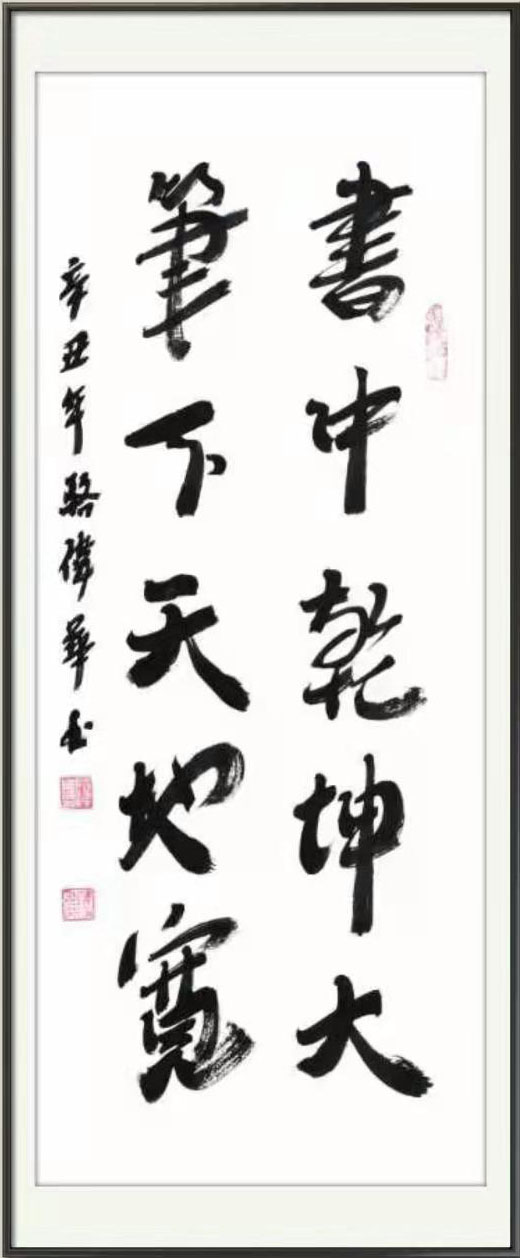 書中乾坤大
筆下天地寬
辛丑年駱偉華书